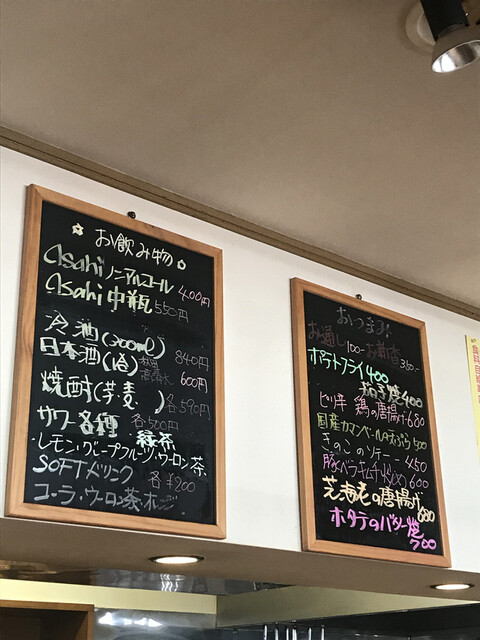 お飲み物
Asahi ノンアルコール 400円
Asahi 中瓶 550円
冷酒(300ml) 840円
日本酒(1合) 600円
焼酎(芋麦 ) 各590円
サワー各種 各500円
緑茶
・レモン・グレープフルーツ・ウーロン茶
SOFTドリンク 各¥200
コーラ・ウーロン茶・
おつまみ
お通し100- お新香 350-
ポテトフライ400
茄子焼400
ピリ辛 鶏の唐揚げ680
国産カマンベールの天ぷら500
きのこのソテー 450
豚バラキムチ炒め600
芝海老の唐揚げ680
ホタテのバター焼700